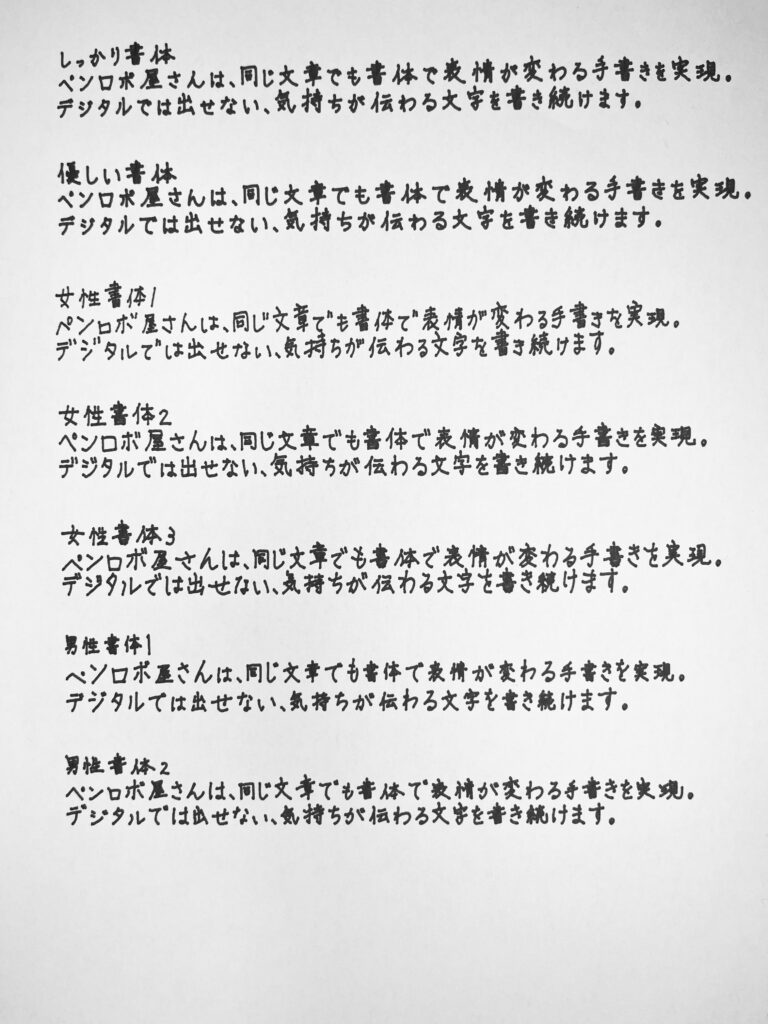 しっかり書体
ペンロボ屋さんは、同じ文章でも書体で表情が変わる手書きを実現。
デジタルでは出せない、気持ちが伝わる文字を書き続けます。
優しい書体
ペンロボ屋さんは、同じ文章でも書体で表情が変わる手書きを実現。
デジタルでは出せない、気持ちが伝わる文字を書き続けます。
女性書体1
ペンロボ屋さんは、同じ文章でも書体で表情が変わる手書きを実現。
デジタルでは出せない、気持ちが伝わる文字を書き続けます。
女性書体2
ペンロボ屋さんは、同じ文章でも書体で表情が変わる手書きを実現。
デジタルでは出せない、気持ちが伝わる文字を書き続けます。
女性書体3
ペンロボ屋さんは、同じ文章でも書体で表情が変わる手書きを実現。
デジタルでは出せない、気持ちが伝わる文字を書き続けます。
男性書体1
ペンロボ屋さんは、同じ文章でも書体で表情が変わる手書きを実現。
デジタルでは出せない、気持ちが伝わる文字を書き続けます。
男性書体2
ペンロボ屋さんは、同じ文章でも書体で表情が変わる手書きを実現。
デジタルでは出せない、気持ちが伝わる文字を書き続けます。